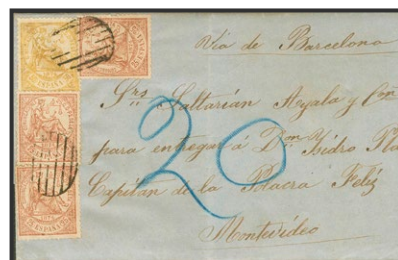 Via de Barcelona
Srs Saltarián Ayala y Con
para entregar á Don Ysidro Pla
Capitán de la Polacra Feliz
Montevideo
20